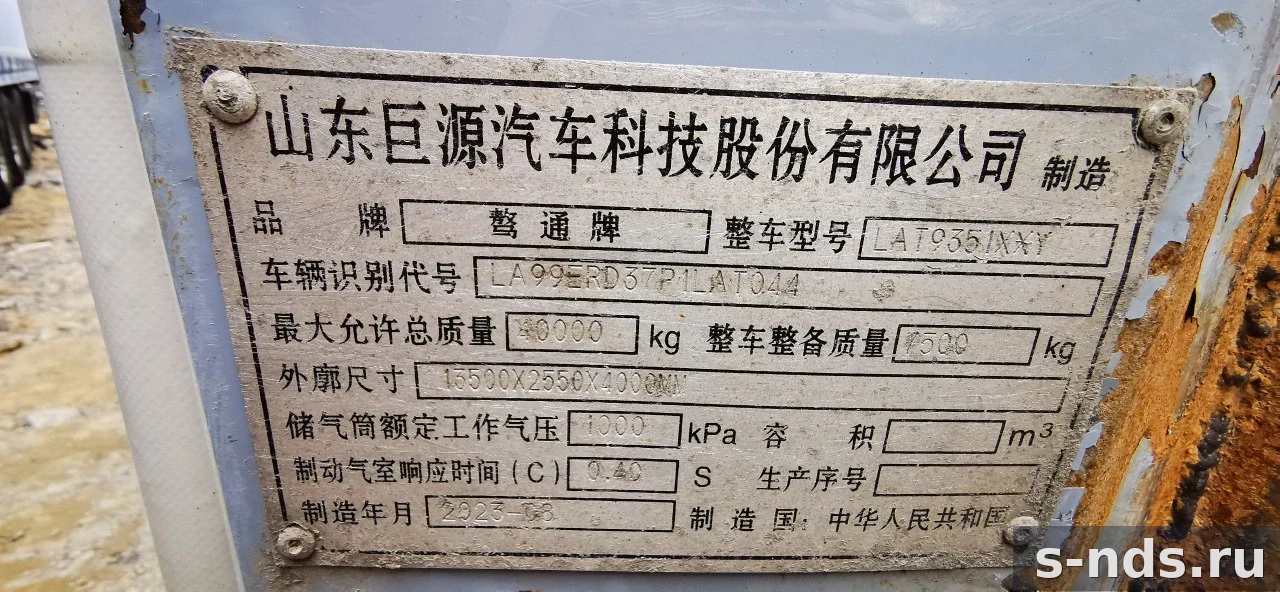 山东巨源汽车科技股份有限公司 制造
品 牌 骜通牌 整车型号 LAT9351XXY
车辆识别代号 LA99ERD37P1LAT044
最大允许总质量 40000 kg 整车整备质量 7500 kg
外廓尺寸 13500X2550X4000MM
储气筒额定工作气压 1000 kPa 容 积 m³
制动气室响应时间(C) 0.40 S 生产序号
制造年月 2023-08 制造国: 中华人民共和国
s-nds.ru